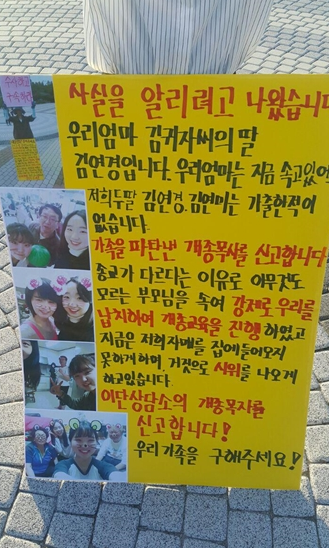 사실을 알리려고 나왔습니다
우리엄마 김귀자씨의 딸
김연경입니다. 우리엄마는 지금 속고있어
저희두딸 김연경, 김연미는 가출한적이
없습니다.
가족을 파탄낸 개종목사를 신고합니다!
종교가 다르다는 이유로 아무것도
모르는 부모님을 속여 강제로 우리를
납치하여 개종교육을 진행하였고
지금은 저희자매를 집에들어오지
못하게하며, 거짓으로 시위를 나오게
하고있습니다.
이단상담소의 개종목자를
신고합니다!
우리가족을 구해주세요!